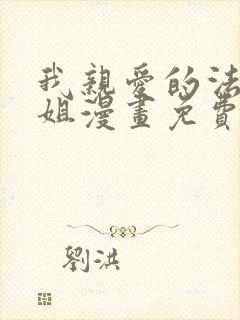 我親愛的法
姐漫畫免費
劉洪